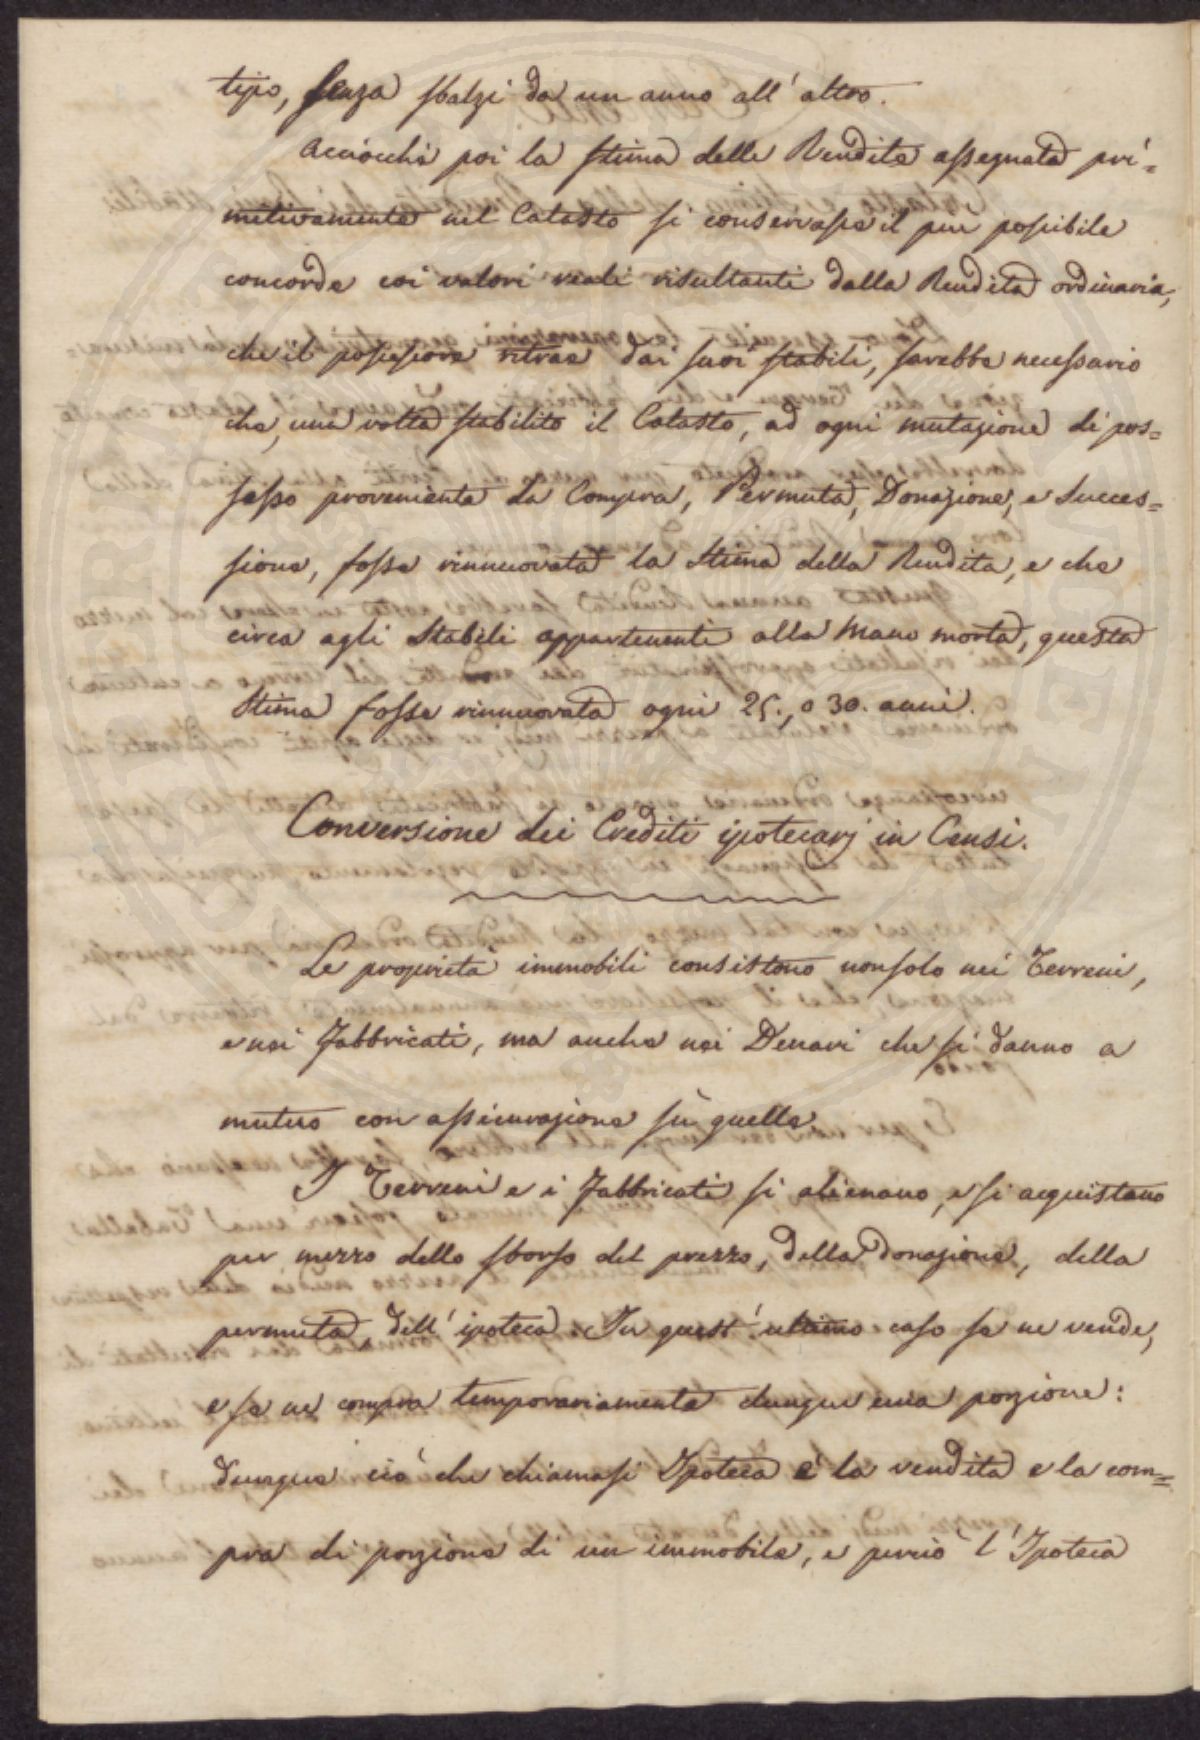 tipo, senza sbalzi da un anno all'altro.
Acciocchè poi la stima delle Rendite assegnata pri=
mitivamente nel Catasto si conservasse il più possibile
concorde coi valori reali risultanti dalla Rendita ordinaria,
che il possessore ritrae dai suoi stabili, sarebbe necessario
che, una volta stabilito il Catasto, ad ogni mutazione di pos=
sesso proveniente da Compra, Permuta, Donazione, e Succes=
sione, fosse rinnuovata la Stima della Rendita, e che
circa agli Stabili appartenenti alla Mano morta, questa
Stima fosse rinnuovata ogni 25., o 30. anni.
Conversione dei Crediti ipotecarj in Censi.
Le proprietà immobili consistono non solo nei Terreni,
e nei Fabbricati, ma anche nei Denari che si danno a
mutuo con assicurazione sù quelle.
I Terreni e i Fabbricati si alienano, e si acquistano
per mezzo dello sborso del prezzo, della Donazione, della
permuta, dell'ipoteca. In quest'ultimo caso se ne vende,
e se ne compra temporariamente dunque una porzione:
dunque ciò che chiamasi Ipoteca è la vendita e la com=
pra di porzione di un immobile, e perciò l'Ipoteca